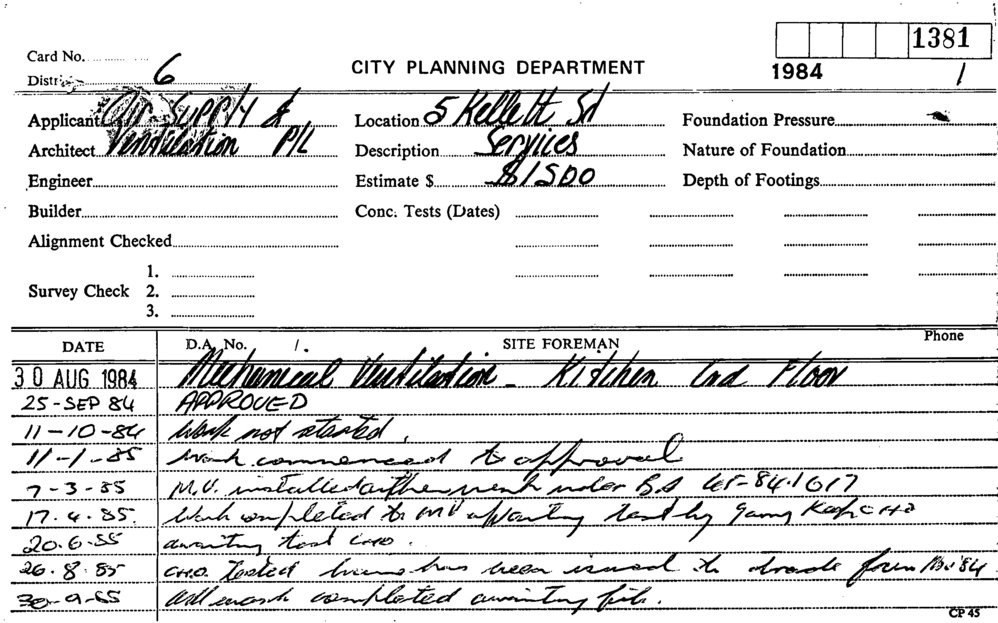 1381
Card No.
1984 /
Distri 6
CITY PLANNING DEPARTMENT
Applicant Air Supply &
Location 5 Kellett St
Foundation Pressure
Architect Ventilation P/L
Description Services
Nature of Foundation
Engineer
Estimate $ $1500
Depth of Footings
Builder
Conc. Tests (Dates)
Alignment Checked
1.
Survey Check 2.
3.
DATE D.A. No. /. SITE FOREMAN Phone
30 AUG 1984 Mechanical Ventilation - Kitchen Gnd Floor
25-SEP 84 APPROVED
11-10-84 Work not started.
11-1-85 Work commenced to approval
7-3-85 M.V. installed work under B.A 84.1017
17.4.85. Work completed to MV awaiting test by
20.6.85 awaiting test CHO.
26.8.85 CHO. Tested has been issued to trade from
30-9-85 All work completed awaiting
CP 45